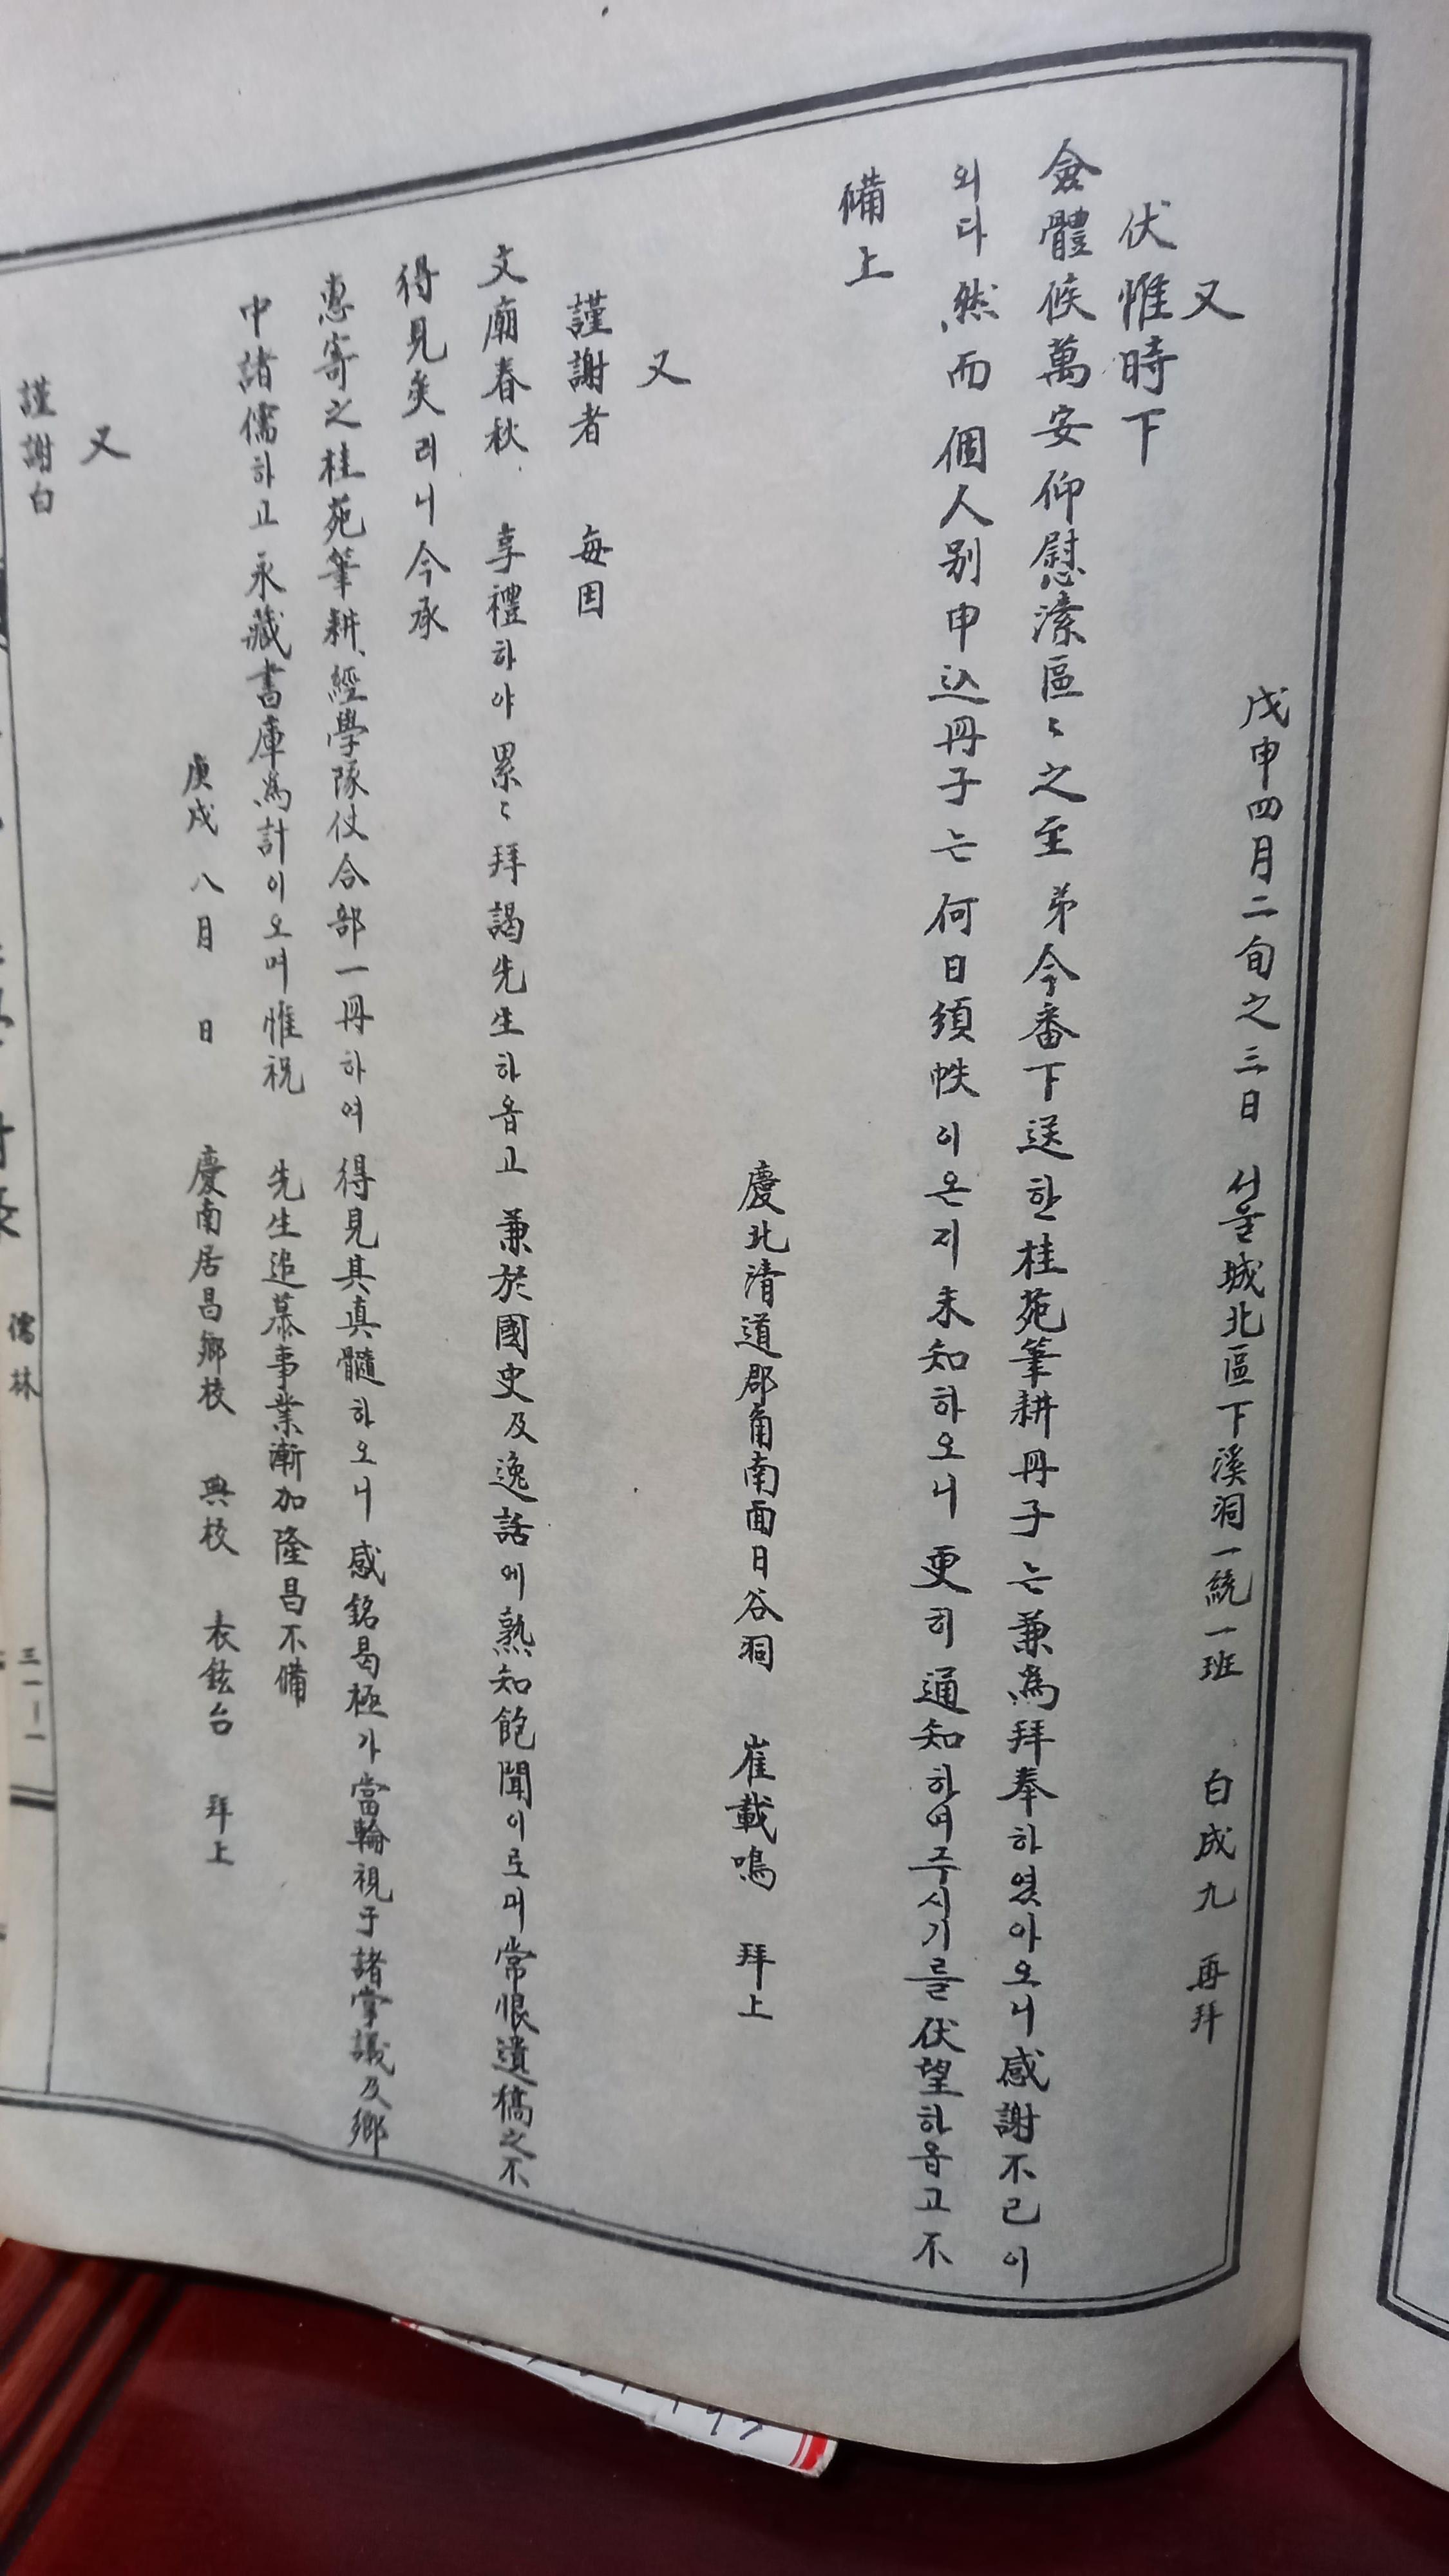 戊申四月二旬之三日 서울城北區下溪洞一統一班 白成九 再拜
又
伏惟時下
僉體候萬安仰慰溸區〻之至 弟今番下送한桂苑筆耕冊子는兼爲拜奉하였아오니感謝不已이
외다然而個人別申込冊子는何日頒帙이온지未知하오니更히通知하여주시기를伏望하옵고不
備上
慶北清道郡角南面日谷洞 崔載鳴 拜上
又
謹謝者 每因
文廟春秋 享禮하야累〻拜謁先生하옵고兼於國史及逸話에熟知飽聞이로며常恨遺稿之不
得見矣러니今承
惠寄之桂苑筆耕、經學隊仗合部一冊하여得見其真髓하오니感銘曷極가當輪視于諸掌議及鄉
中諸儒하고永藏書庫爲計이오며惟祝 先生追慕事業漸加隆昌不備
庚戌 八月 日 慶南居昌鄉校 典校 衣鉉台 拜上
又
謹謝白
儒林
三一一一